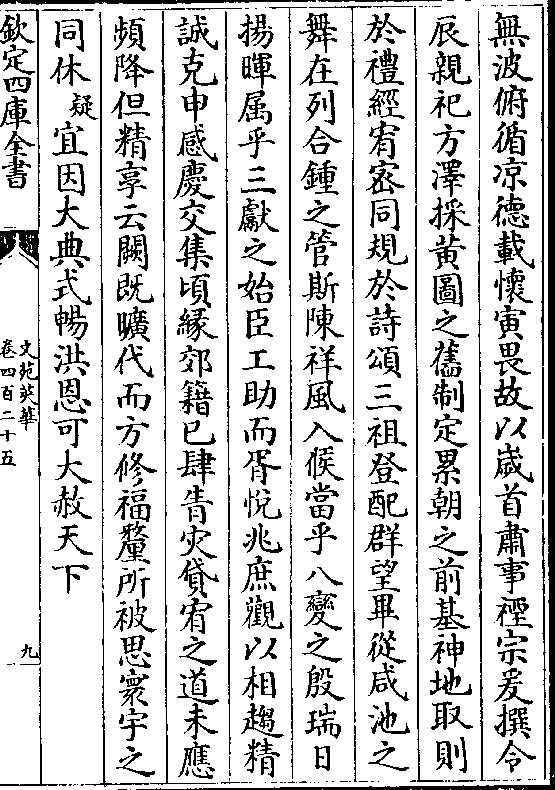 無波俯循凉德載懷寅畏故以歳首肅事禋宗爰撰令
辰親祀方澤採黄圖之舊制定累朝之前基神地取則
於禮經宥宻同規於詩頌三祖登配群望畢從咸池之
舞在列合鍾之管斯陳祥風入候當乎八變之殷瑞日
揚暉属乎三獻之始臣工助而胥悦兆庶觀以相趨精
誠克申感慶交集頃縁郊籍已肆眚灾貸宥之道未應
頻降但精享云闕既曠代而方修福釐所被思寰宇之
同休疑宜因大典式暢洪恩可大赦天下
欽定四庫全書
文苑英華
卷四百二十五
九